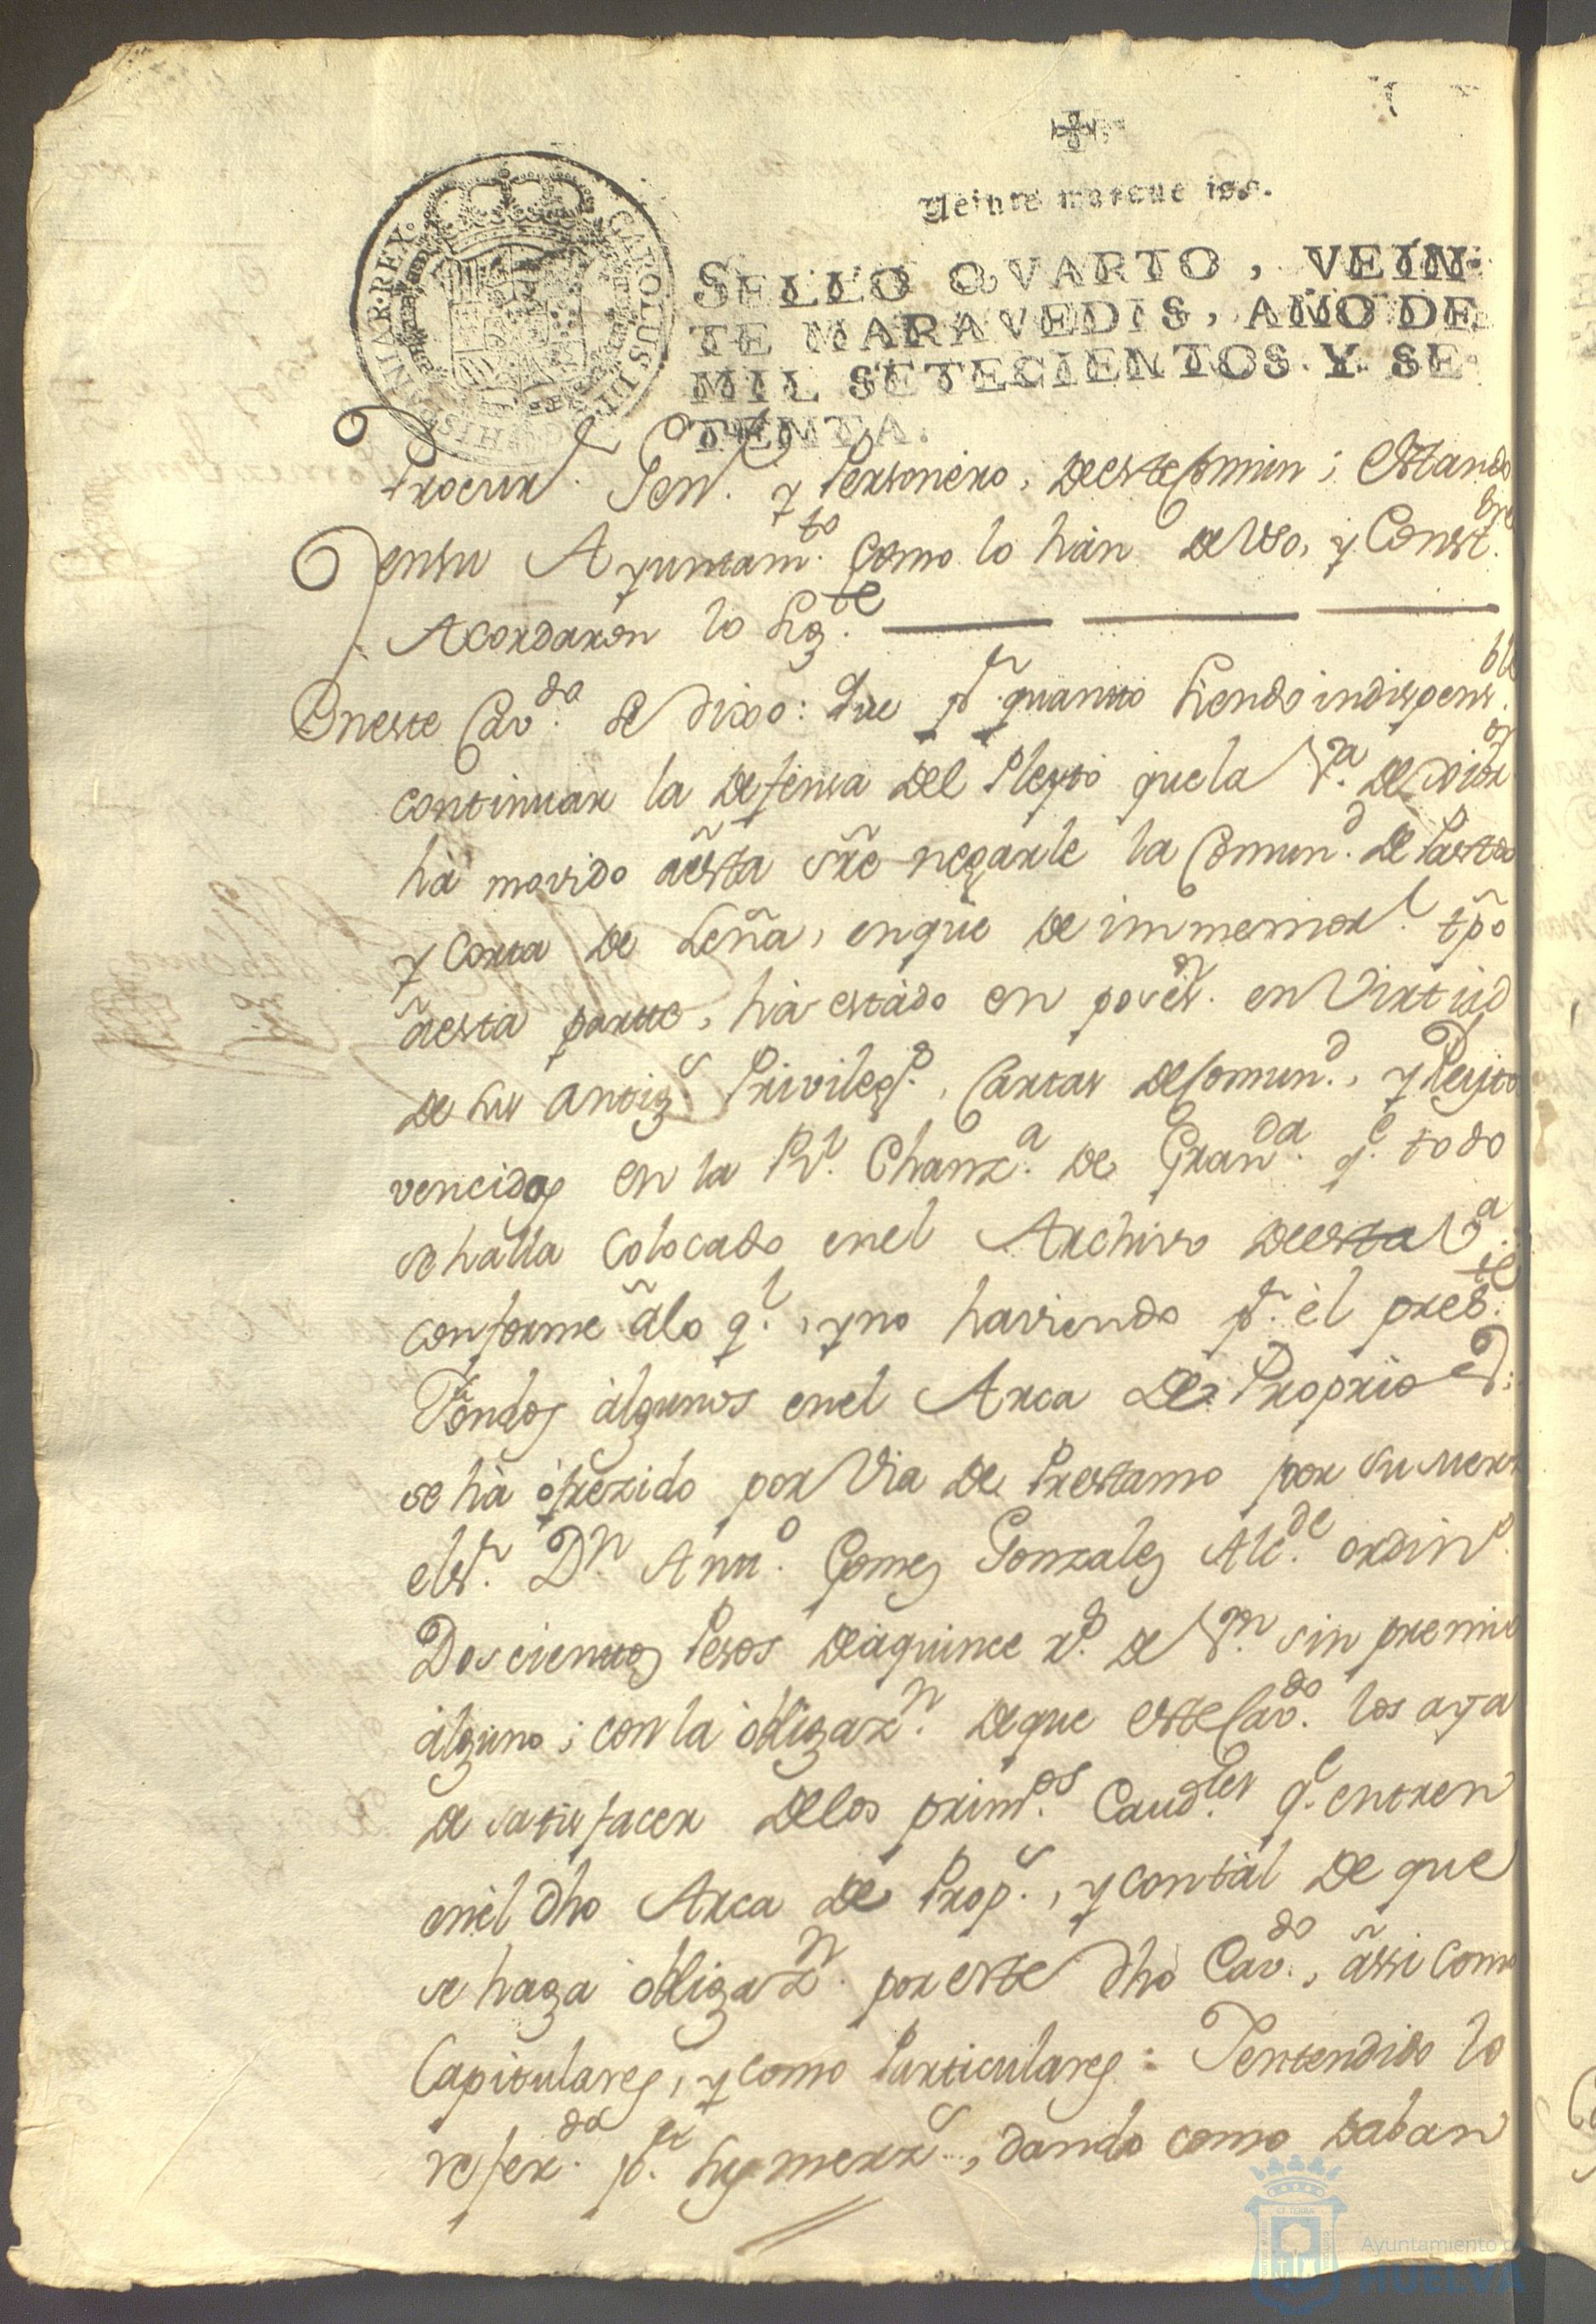 Veinte maraue is.
SELLO QVARTO, VEIN-
TE MARAVEDIS, AÑO DE
MIL SETECIENTOS Y SE-
TENTA.
CAROLUS III D G HISPANIAR REX
Procurr. Genl. y Personero, deeste Comun; estando
ensu Ayuntamto. como lo hán de Uso, y Constbre.
Acordaron lo Sigte.
Eneste Cavdo. se dixo: Que pr. quanto siendo indispensble.
continuar la defensa del Pleyto que la Va. de
há movido áesta sre negarle la Comund. de Pastos
y Corta de Leña, enque de immemorl. tpo
áesta parte, há estádo en posen. en Virtud
de sus antigs. Privilegs., Cartas de Comund., y Pleytos
vencidos en la Rl. Chanza. de Granda. qe. todo
se halla Colocado enel Archivo deesta Va.
conforme álo ql., y no haviendo pr. él preste.
Fondos álgunos enel Arca de Proprios,
se há ófrezido por Via de Prestamo por su merd
elSr. Dn. Anto. Gomez Gonzalez Alcde. ordino.
Doscientos Pesos deáquince rs. de Vn. sin premio
álguno; con la óbligazn. deque este Cavdo. los aya
de satisfacer delos primos. Caudles. qe. entren
enél dho Arca de Props., y contál de que
se haga óbligazn. por este dho Cavdo., ássi como
Capitulares, y como Particulares: Yentendido lo
referdo. pr. sus merzs., dando como daban
Ayuntamiento de
HUELVA